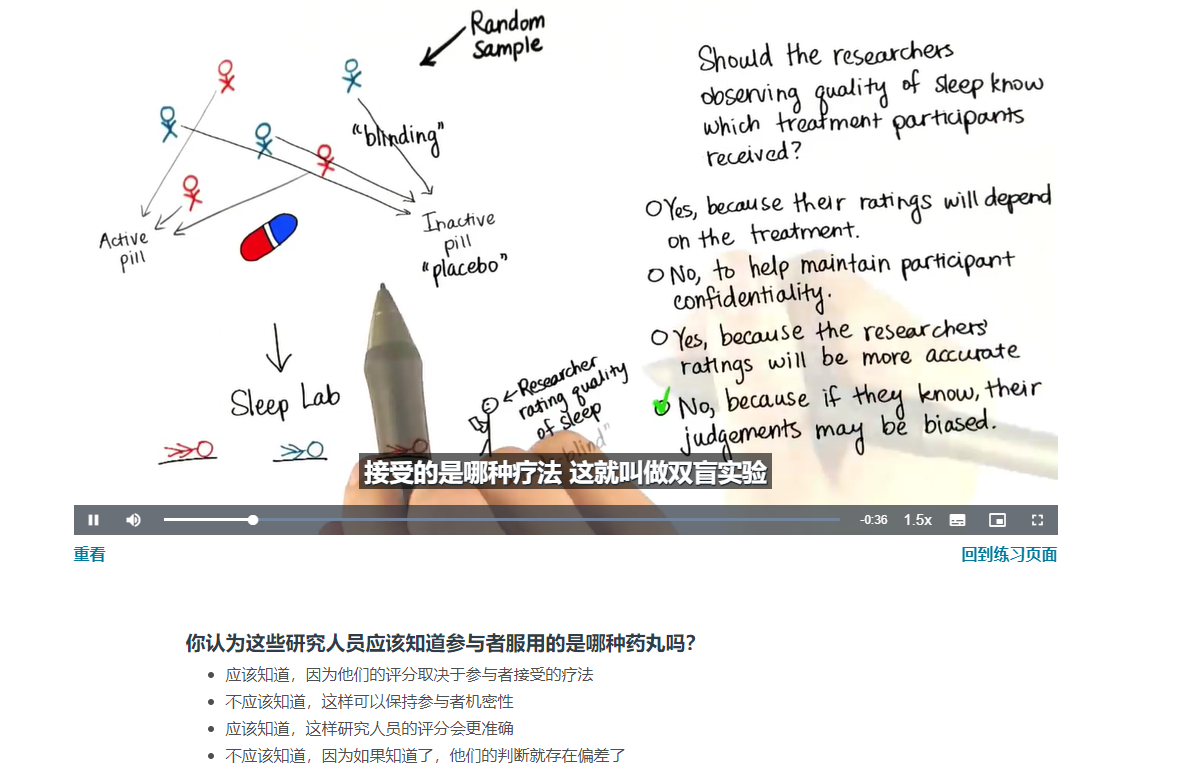 Random
Sample
"blinding"
Active
pill
Inactive
pill
"placebo"
Sleep Lab
←Researcher
rating quality
of sleep
"blind"
Should the researchers
observing quality of sleep know
which treatment participants
received?
Yes, because their ratings will depend
on the treatment.
No, to help maintain participant
confidentiality.
Yes, because the researchers'
ratings will be more accurate
No, because if they know, their
judgements may be biased.
接受的是哪种疗法 这就叫做双盲实验
-0:36 1.5x
重看
回到练习页面
你认为这些研究人员应该知道参与者服用的是哪种药丸吗?
• 应该知道，因为他们的评分取决于参与者接受的疗法
• 不应该知道，这样可以保持参与者机密性
• 应该知道，这样研究人员的评分会更准确
• 不应该知道，因为如果知道了，他们的判断就存在偏差了